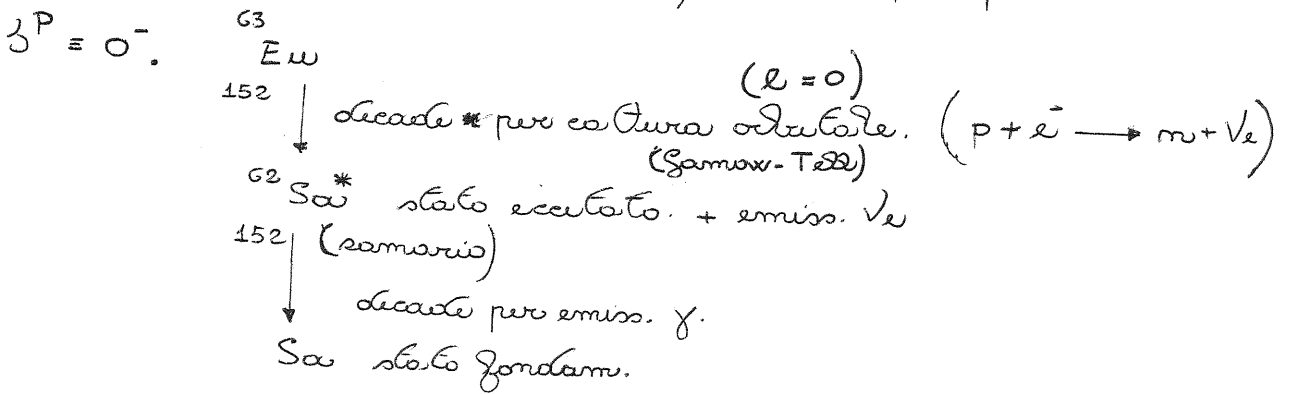 J^P ≡ 0^-.
63
Eu
152
(l = 0)
decade per cattura orbitale. (p + e^- → n + νe)
(Gamow-Tell)
62 Sa* stato eccitato. + emiss. νe
152 (samario)
decade per emiss. γ.
Sa stato fondam.